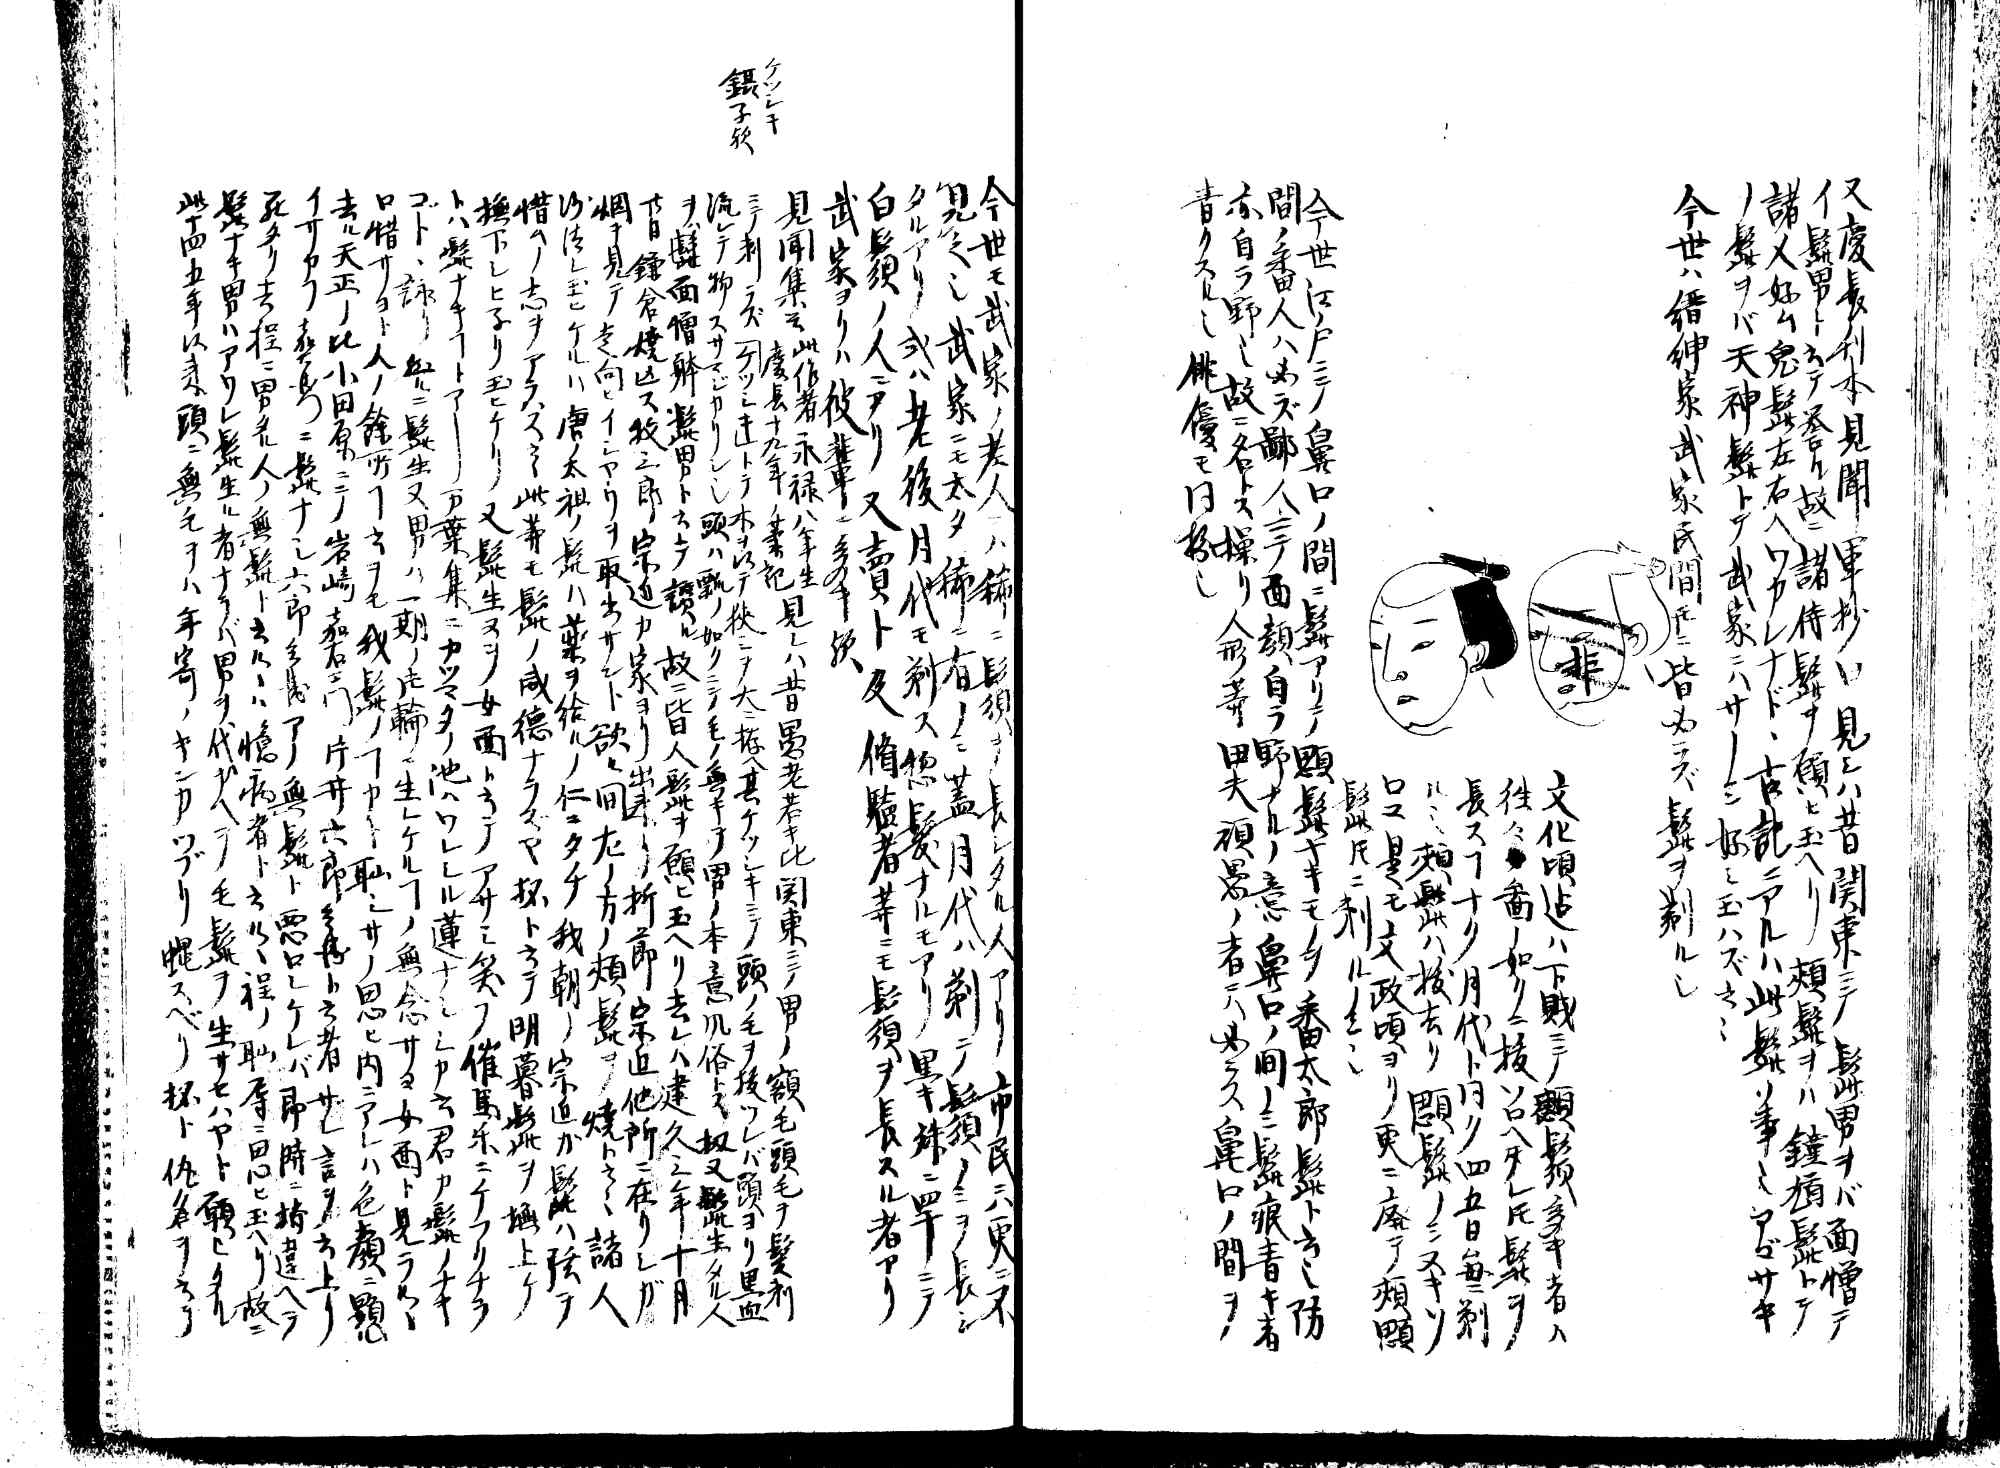 又慶長ノ刊本見聞軍抄ニ
見ヘハ昔関東ニテ髭男ヲバ面憎テ
イ髭男ト云テ
故ニ諸侍髭ヲ願ヒ玉ヘリ頬髭ヲハ鐘馗髭トテ
諸人好ム鬼髭左右ヘワカレナド
古記ニアルハ此髭ノ事
ノ髭ヲバ天神髭トテ武家ニハ
好ミ玉ハズ云々
今世ハ縉紳家武家民間トモニ皆必ラズ髭ヲ剃ル也
非
文化頃迄ハ下賎ニテ顋鬚多キ者ハ
往々図ノ如クニ抜ソロヘタレトモ髭ヲ
長スコナク月代ト同ク四五日毎ニ剃
ルミ頬髭ハ抜去リ顋髭ノミスキソ
ロヱ是モ文政頃ヨリ更ニ廃テ頬顋
髭トモニ剃ルノミ也
今世江ノ戸ニテ鼻口ノ間ニ髭アリテ顋髭ナキモノヲ番太郎髭ト云也防
間ノ番人ハ必ズ鄙人ニテ面顔自ラ野ナルノ意鼻口ノ間ノミ髭痕青キ者
亦自ラ野也故ニ名トス操リ人形等田夫頑愚ノ者ニハ必ラス鼻口ノ間ヲ
青クスル也俳優モ同扮也
今世モ武家ノ老人ニハ稀ニ髭須ヲ長シタル人アリ市民ニハ更ニ不
見之也武家ニモ太タ稀ニ有ノミ蓋月代ハ剃テ鬚ノミヲ長シ
タルアリ或ハ老後月代モ剃ス惣髪ナルモアリ黒キ殊ニ罕ニテ
白鬚ノ人ニアリ又賣卜及脩驗者等ニモ髭須ヲ長スル者アリ
武家ヨリハ彼輩ニ多キ歟
見聞集云此作者永禄八年生
慶長十九年ノ筆記
見シハ昔愚老若キ比関東ニテ男ノ額毛頭毛ヲ髪剃
ニテ剃ラズケツシキ迚トテ木ヲ以テ挾ミヲ大ニ拵ヘ其ケツシキニテ頭ノ毛ヲ抜ツレバ頭ヨリ黒血
流レテ物スサマジカリシ也頭ハ瓢ノ如クニテ毛ノ無キヲ男ノ本意凡俗トス扨又髭生タル人
ヲバ髭面憎躰髭男ト云テ讃ル故ニ皆人髭ヲ願ヒ玉ヘリ去レハ建久三年十月
廿日鎌倉焼亡ス牧三郎宗近カ家ヨリ出来ル折節宗近他所ニ在リシガ
烟ヲ見テ走向ヒイシヤウヲ取出サント欲ル間左ノ方ノ頬髭ヲ焼ト云々諸人
沙汰シ玉ヒケルハ唐ノ太祖ノ髭ハ薬ヲ給ルノ仁ニタチ我朝ノ宗近カ髭ハ弦テ
惜ムノ志ヲアラハス云々此等モ髭ノ威徳ナラズヤ抔ト云テ明暮髭ヲ撫上ケ
撫下シヒネリ玉ヒケリ又髭生ヌヲ女面ト云テアサミ笑フ催馬楽ニケフリナラ
トハ髭ナキコトアリ万葉集ニカツマタノ池ハワレシル蓮ナシシカ云君カ髭ノナキ
ゴト、詠リ
髭生又男ハ一期ノ片輪ニ生レケルコノ無念サヨ女面ト見ラルヽ
口惜サヨト人ノ餘所コト云ヲモ我髭ノコカト恥シサノ思ヒ内ニアレハ色顔ニ顕
去ル天正ノ比小田原ニテ岩崎嘉右衛門片井六郎兵衛ト云者ザレ言ヲ云上リ
イサカフ嘉右衛門ニ髭ナシ六郎兵衛アノ無髭ト悪口シケレバ即時ニ指違ヘテ
死タリ去程ニ男タル人ノ無髭ト云ルヽハ臆病者ト云ルヽ程ノ恥辱ニ思ヒ玉ヘリ故ニ
髭ナキ男ハアワレ髭生ル者ナラバ男ヲ代ガヘテモ髭ヲ生サセハヤト願ヒタル
此十四五年以来頭ニ無毛ヲハ年寄ノキンカツブリ蝿スベリ抔ト仇名ヲ云テ
ケツシキ
鑷子歟